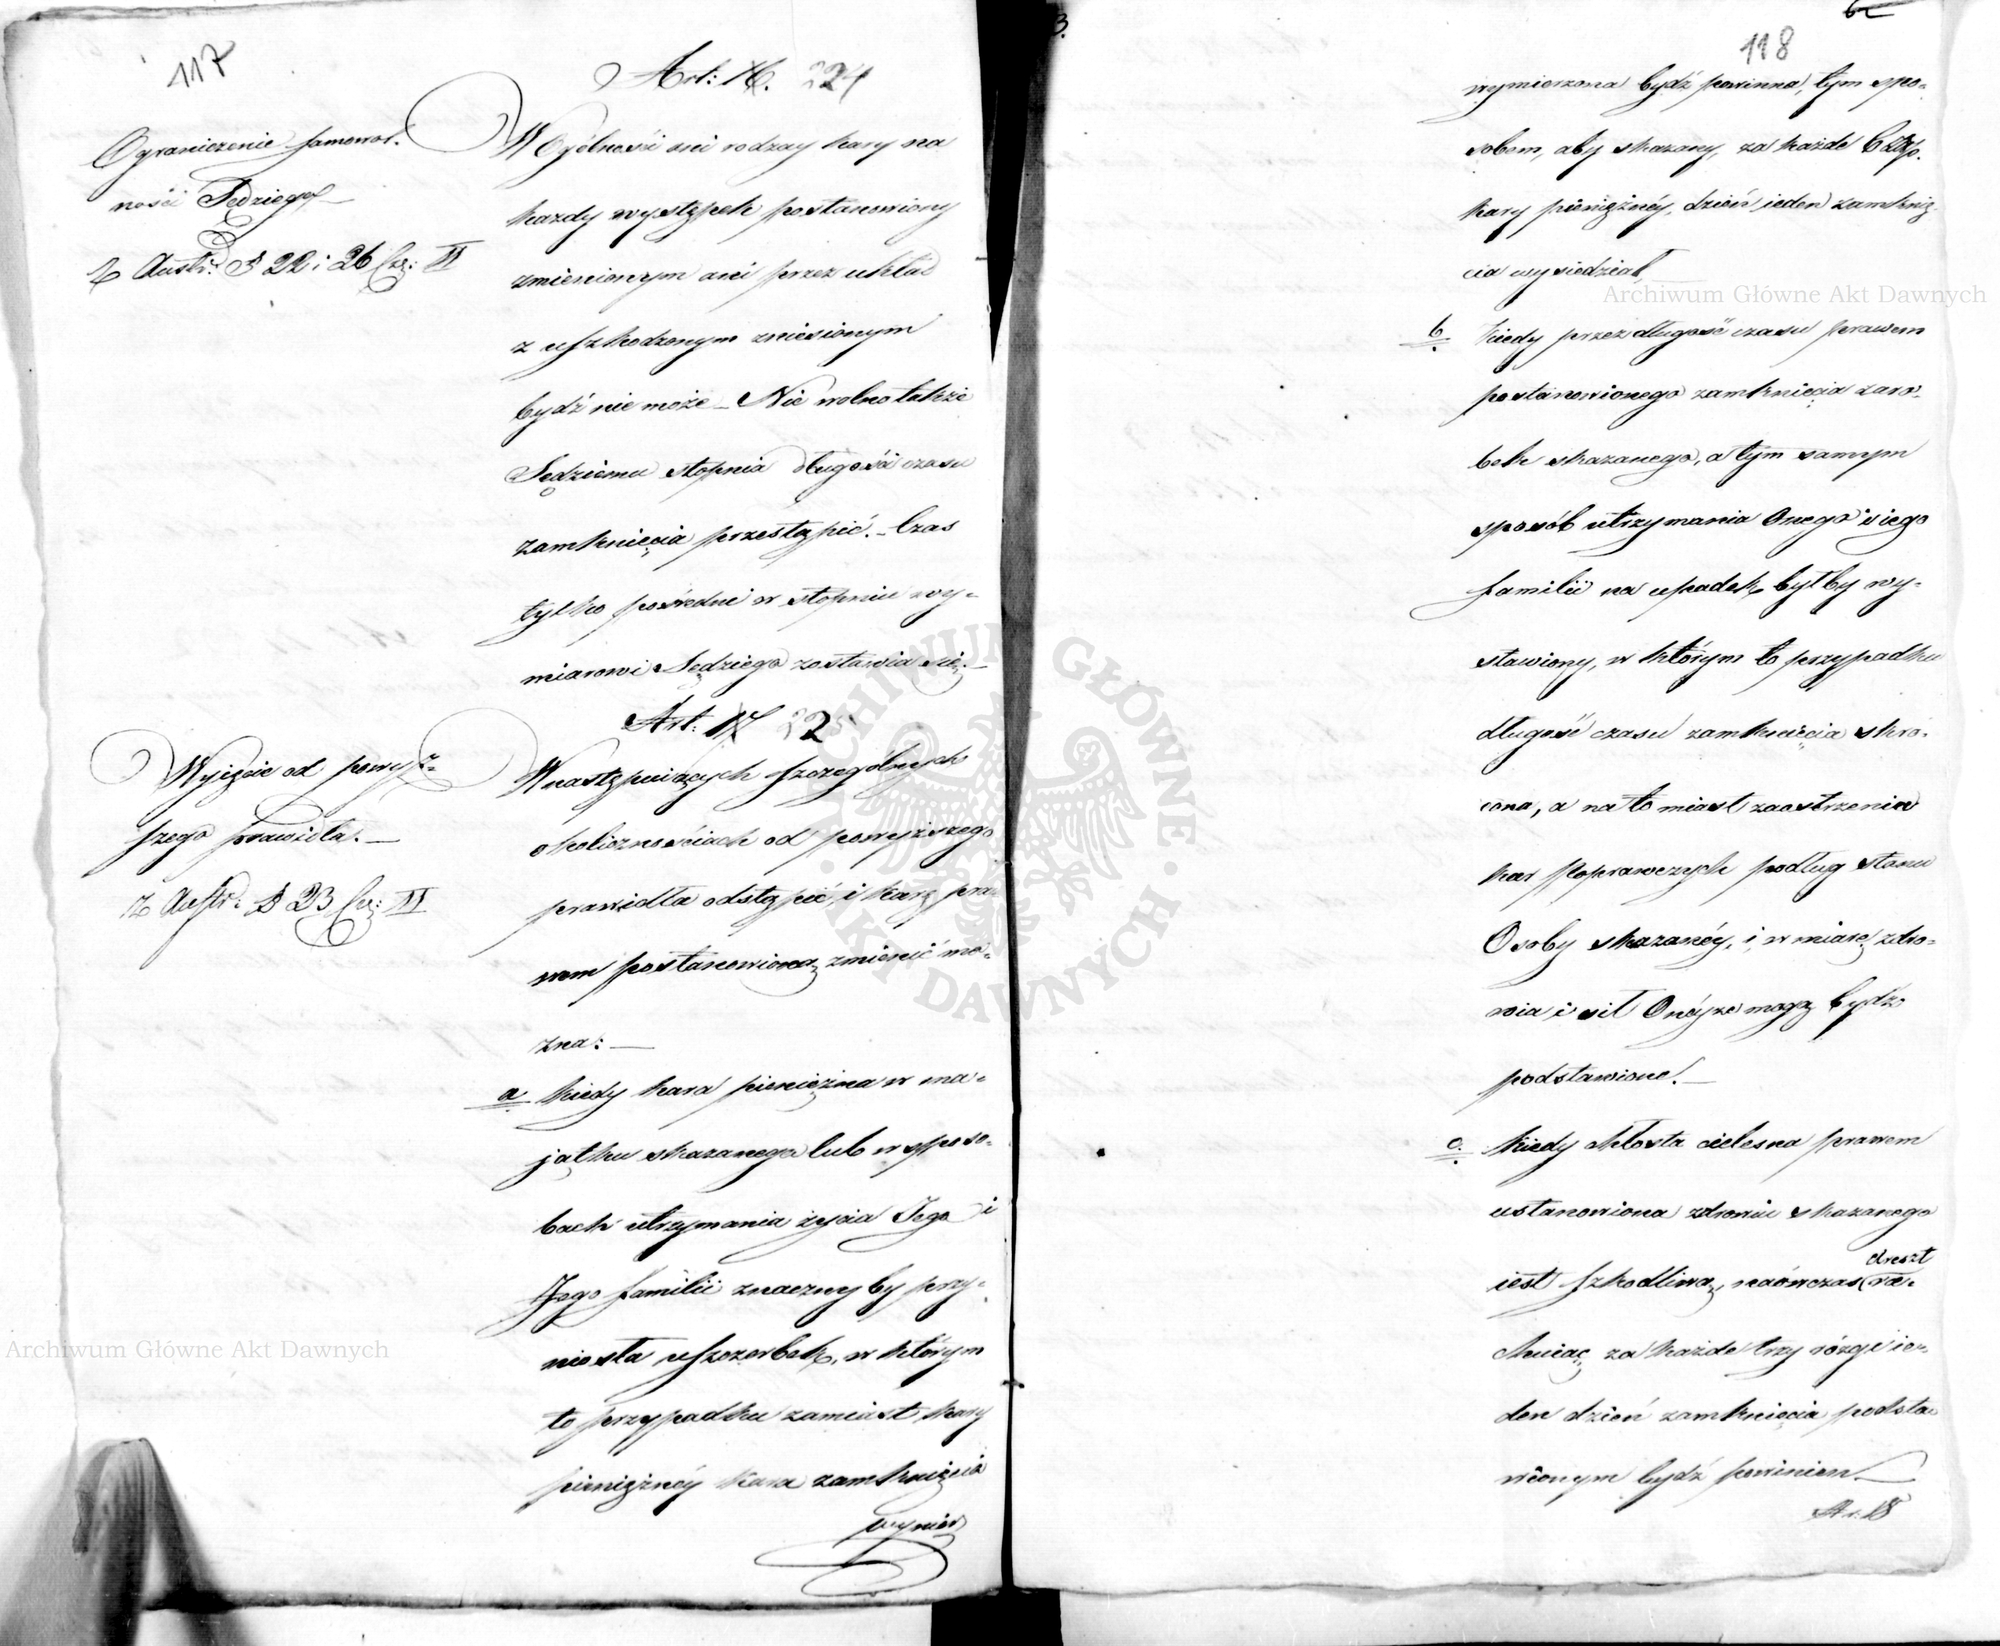 117
Art: 16. 224
Ograniczenie samowol-
ności Sędziego
z Austr: § 22 i 26 Cz: II
W Ogólności ani rodzay kary na
każdy występek postanowiony
zmienionym ani przez układ
z uszkodzonym zniesionym
bydź nie może – Nie wolno także
Sędziemu stopnia długości czasu
zamknięcia przestąpić. – Czas
tylko pośredni w stopniu wy-
miarowi Sędziego zostawia się. –
Art: 17 225
Wyięcie od powyż-
szego prawidła. –
z Austr: § 23 Cz: II
W następuiących szczególnych
okolicznościach od powyższego
prawidła odstąpić, i karę pra-
wem postanowioną zmienić mo-
żna: –
a kiedy kara pieniężna w ma-
jątku skazanego lub w sposo-
bach utrzymania życia Jego i
Jego familii znaczny by przy-
niosła uszczerbek, w którym
to przypadku zamiast kary
pieniężnéy kara zamknięcia
wymier
118
wymierzona bydź powinna, tym spo-
sobem, aby skazany, za każde 6 Złp.
kary pieniężnéy, dzień ieden zamknię-
cia wysiedział
b kiedy przez długość czasu prawem
postanowionego zamknięcia zaro-
bek skazanego, a tym samym
sposób utrzymania Onego i iego
familii na upadek byłby wy-
stawiony, w którym to przypadku
długość czasu zamknięcia skró-
cona, a na to miast zaostrzenie
kar Poprawczych podług stanu
Osoby skazanéy, i w miarę zdro-
wia i sił Onéyże mogą bydź
podstawione. –
c. kiedy chłosta cielesna prawem
ustanowiona zdrowiu skazanego
iest szkodliwą, naówczas (ra-
Areszt
chuiąc za każde trzy rózgi ie-
den dzień zamknięcia podsta-
wionym bydź powinien. –
Ar: 18
Archiwum Główne Akt Dawnych
Archiwum Główne Akt Dawnych
ARCHIWUM GŁÓWNE
· AKT DAWNYCH ·